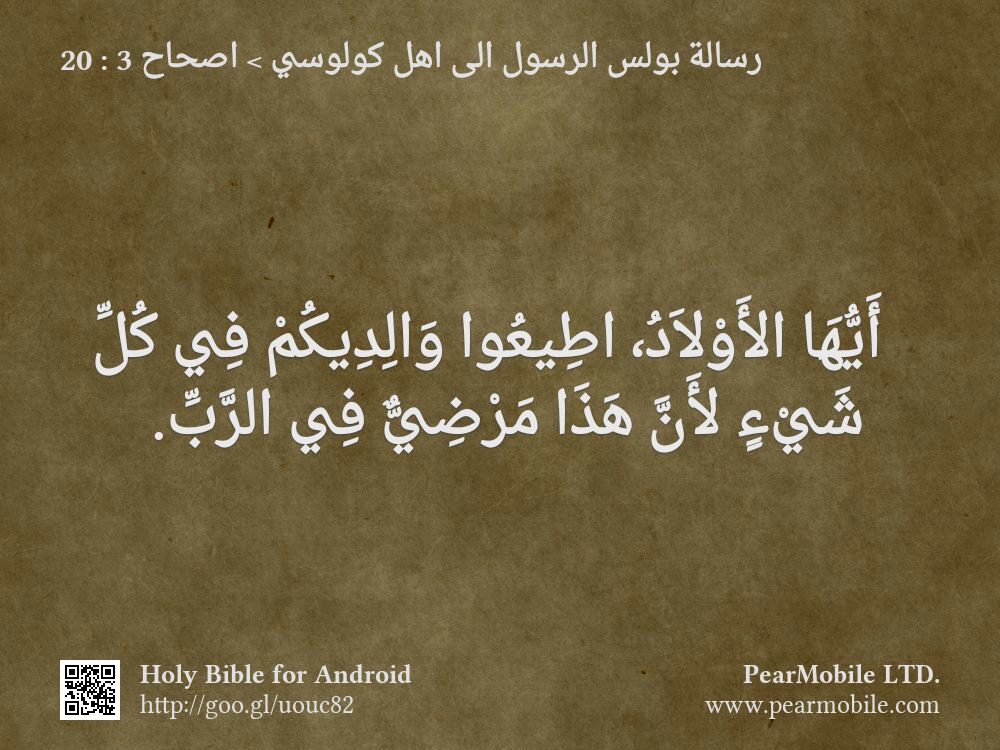 رسالة بولس الرسول الى اهل كولوسي > اصحاح 3 : 20
أَيُّهَا الأَوْلاَدُ، اطِيعُوا وَالِدِيكُمْ فِي كُلِّ
شَيْءٍ لأَنَّ هَذَا مَرْضِيٌّ فِي الرَّبِّ.
Holy Bible for Android
http://goo.gl/uouc82
PearMobile LTD.
www.pearmobile.com